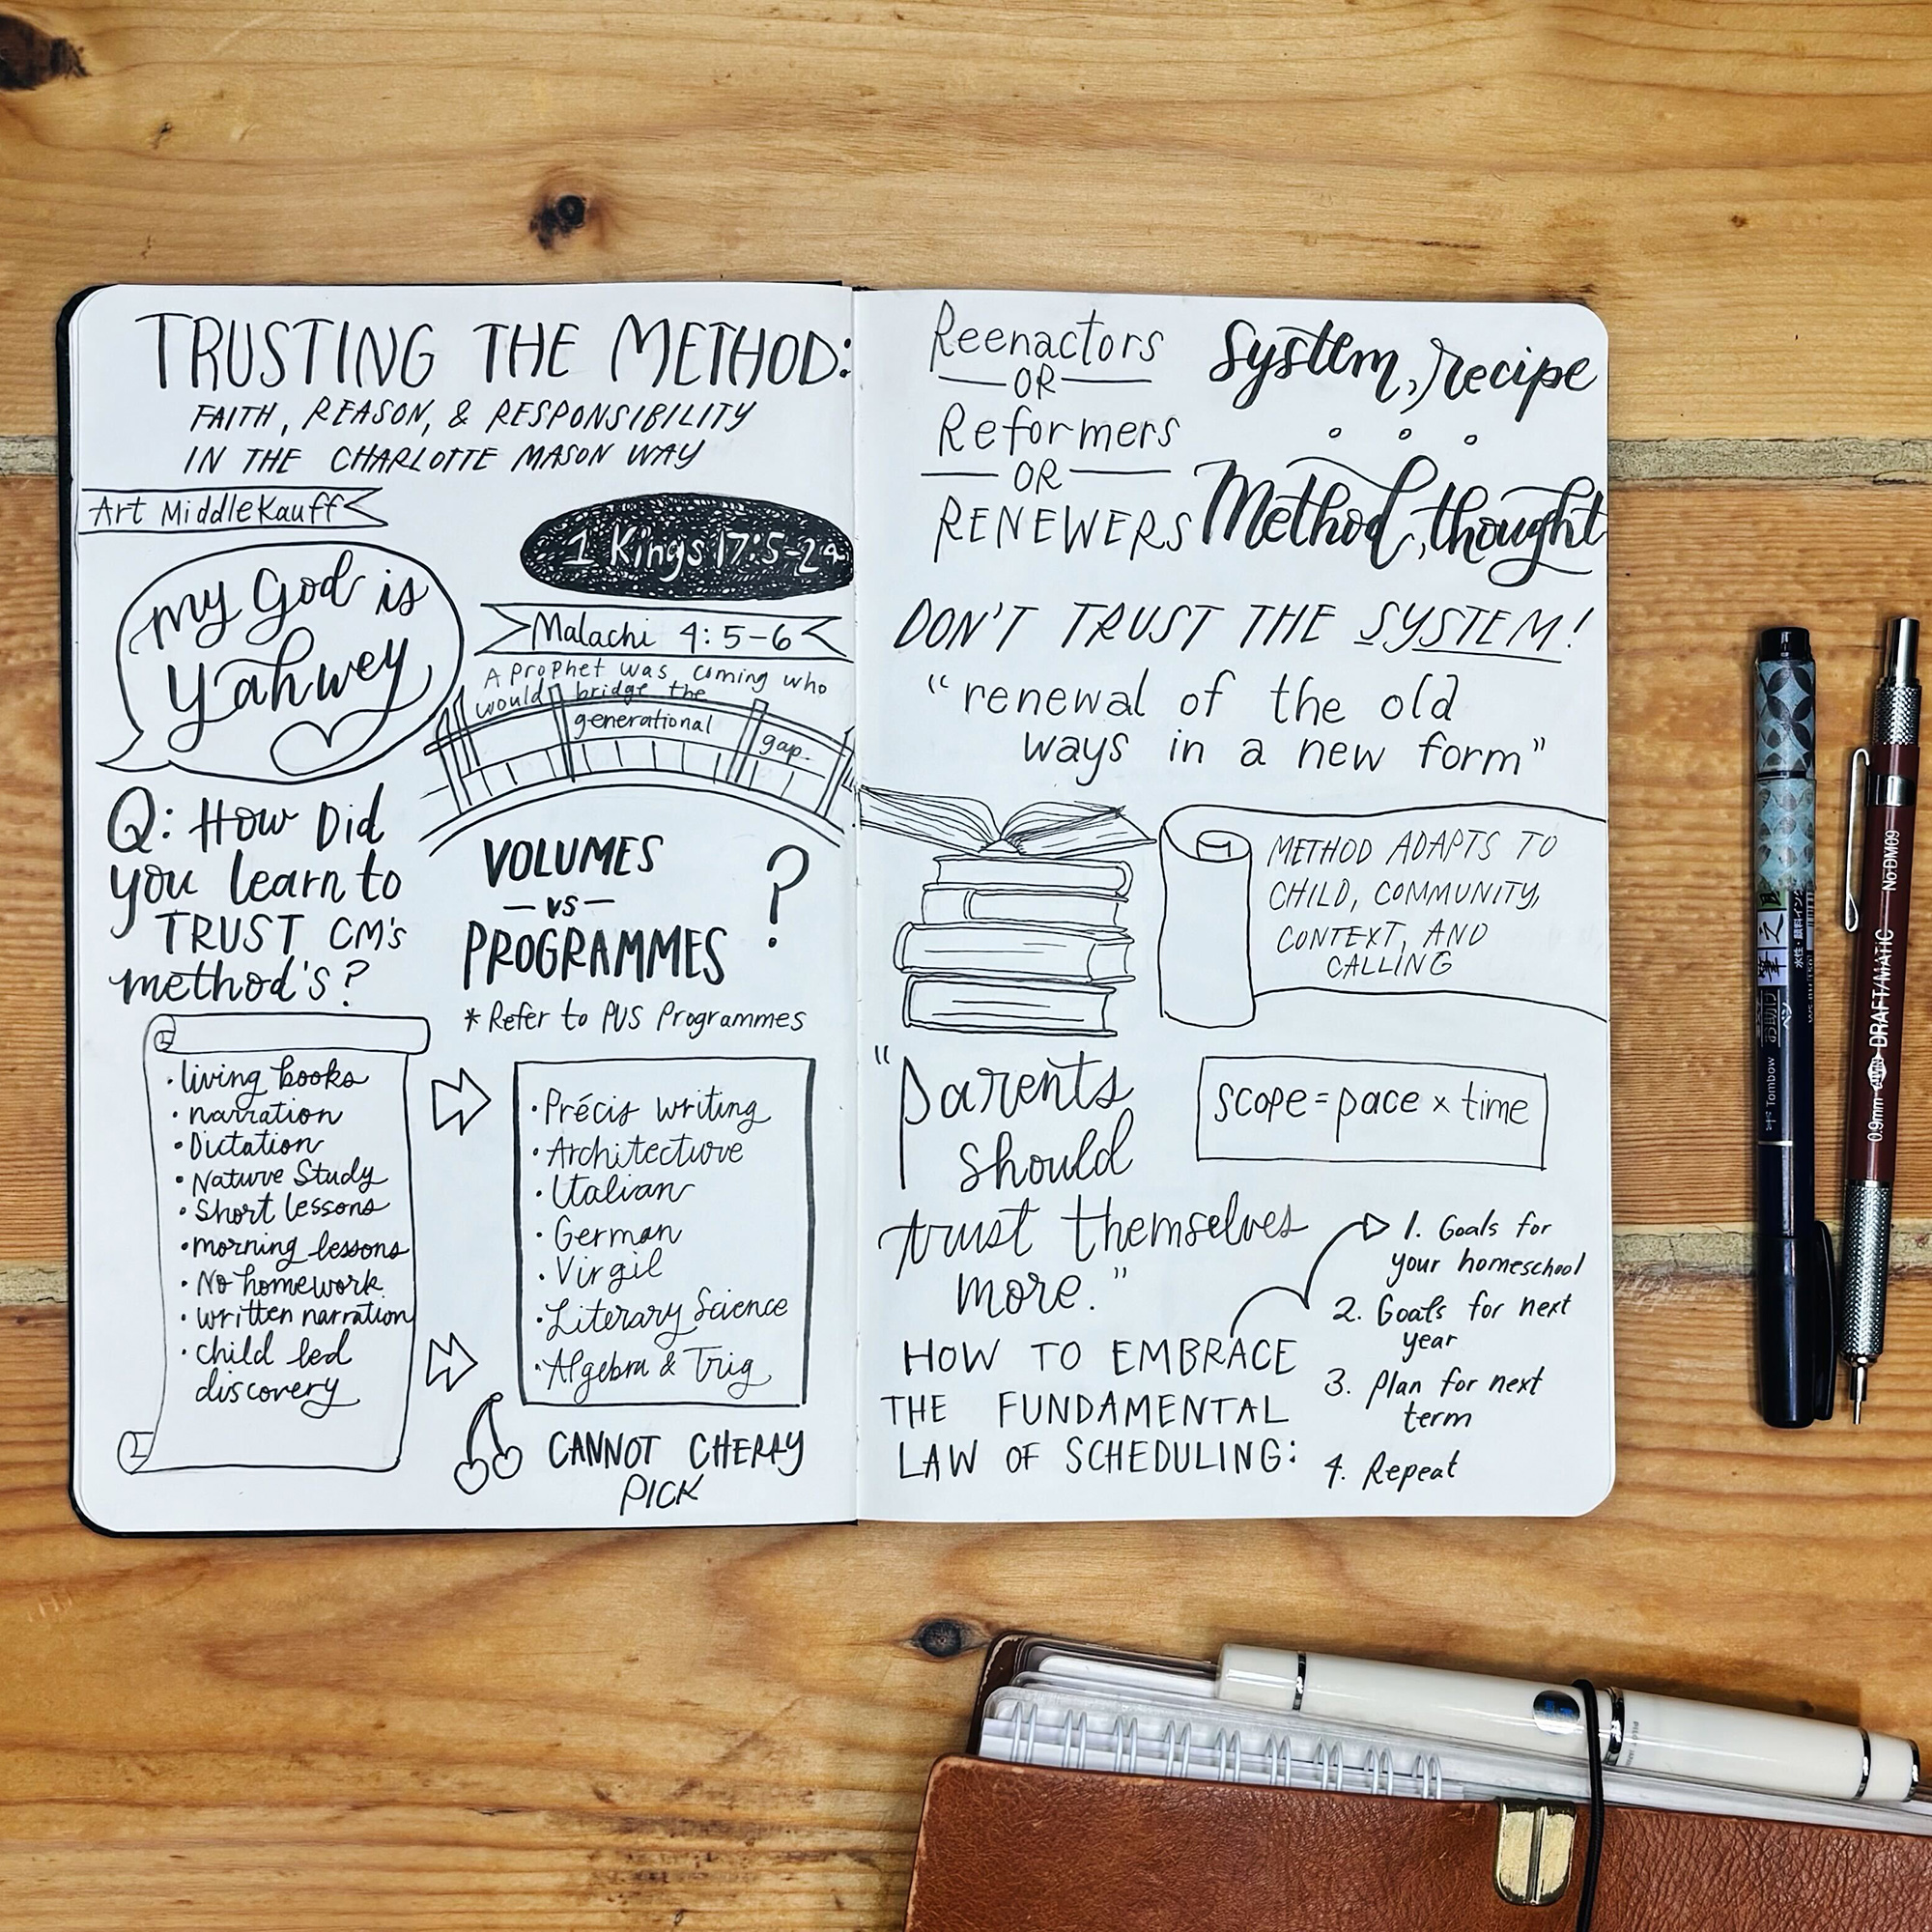 TRUSTING THE METHOD:
FAITH, REASON, & RESPONSIBILITY
IN THE CHARLOTTE MASON WAY
Art Middlekauff
my God is
Yahwey
1 Kings 17:5-24
Malachi 4:5-6
A prophet was coming who
would bridge the
generational
gap.
Q: How Did
you learn to
TRUST CM's
method's?
VOLUMES
VS
PROGRAMMES
?
* Refer to PUS Programmes
• living books
• narration
• Dictation
• Nature Study
• Short lessons
• morning lessons
• No homework
• written narration
• child led
discovery
• Précis writing
• Architecture
• Italian
• German
• Virgil
• Literary Science
• Algebra & Trig
CANNOT CHERRY
PICK
Reenactors
OR
Reformers
OR
RENEWERS
System, recipe
Method, thought
DON'T TRUST THE SYSTEM!
"renewal of the old
ways in a new form"
METHOD ADAPTS TO
CHILD, COMMUNITY,
CONTEXT, AND
CALLING
"Parents
should
trust themselves
more."
scope = pace x time
HOW TO EMBRACE
THE FUNDAMENTAL
LAW OF SCHEDULING:
1. Goals for
your homeschool
2. Goals for next
year
3. Plan for next
term
4. Repeat
Tombow
0.9mm
DRAFT/MATIC
No:DM09